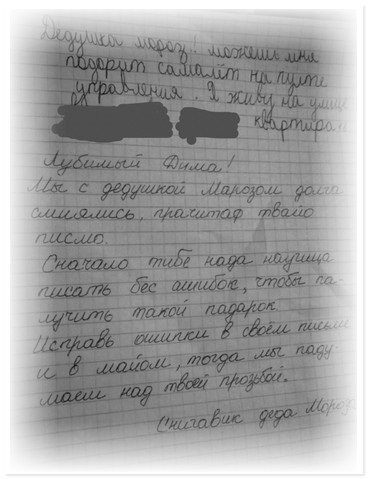 Дедушка мороз! можеш мне
подарит самалёт на пулте
управления. Я живу на улице
квартира
Лубимый Дима!
Мы с дедушкой Марозом долга
смиялись, прачитаф твайо
писмо.
Сначало тибе нада научица
писать бес ашибок, чтобы па-
лучить такой падарок
Исправь ошипки в своём письме
и в майом, тогда мы паду-
маем над твоей прозьбой.
Снигавик деда Мороза